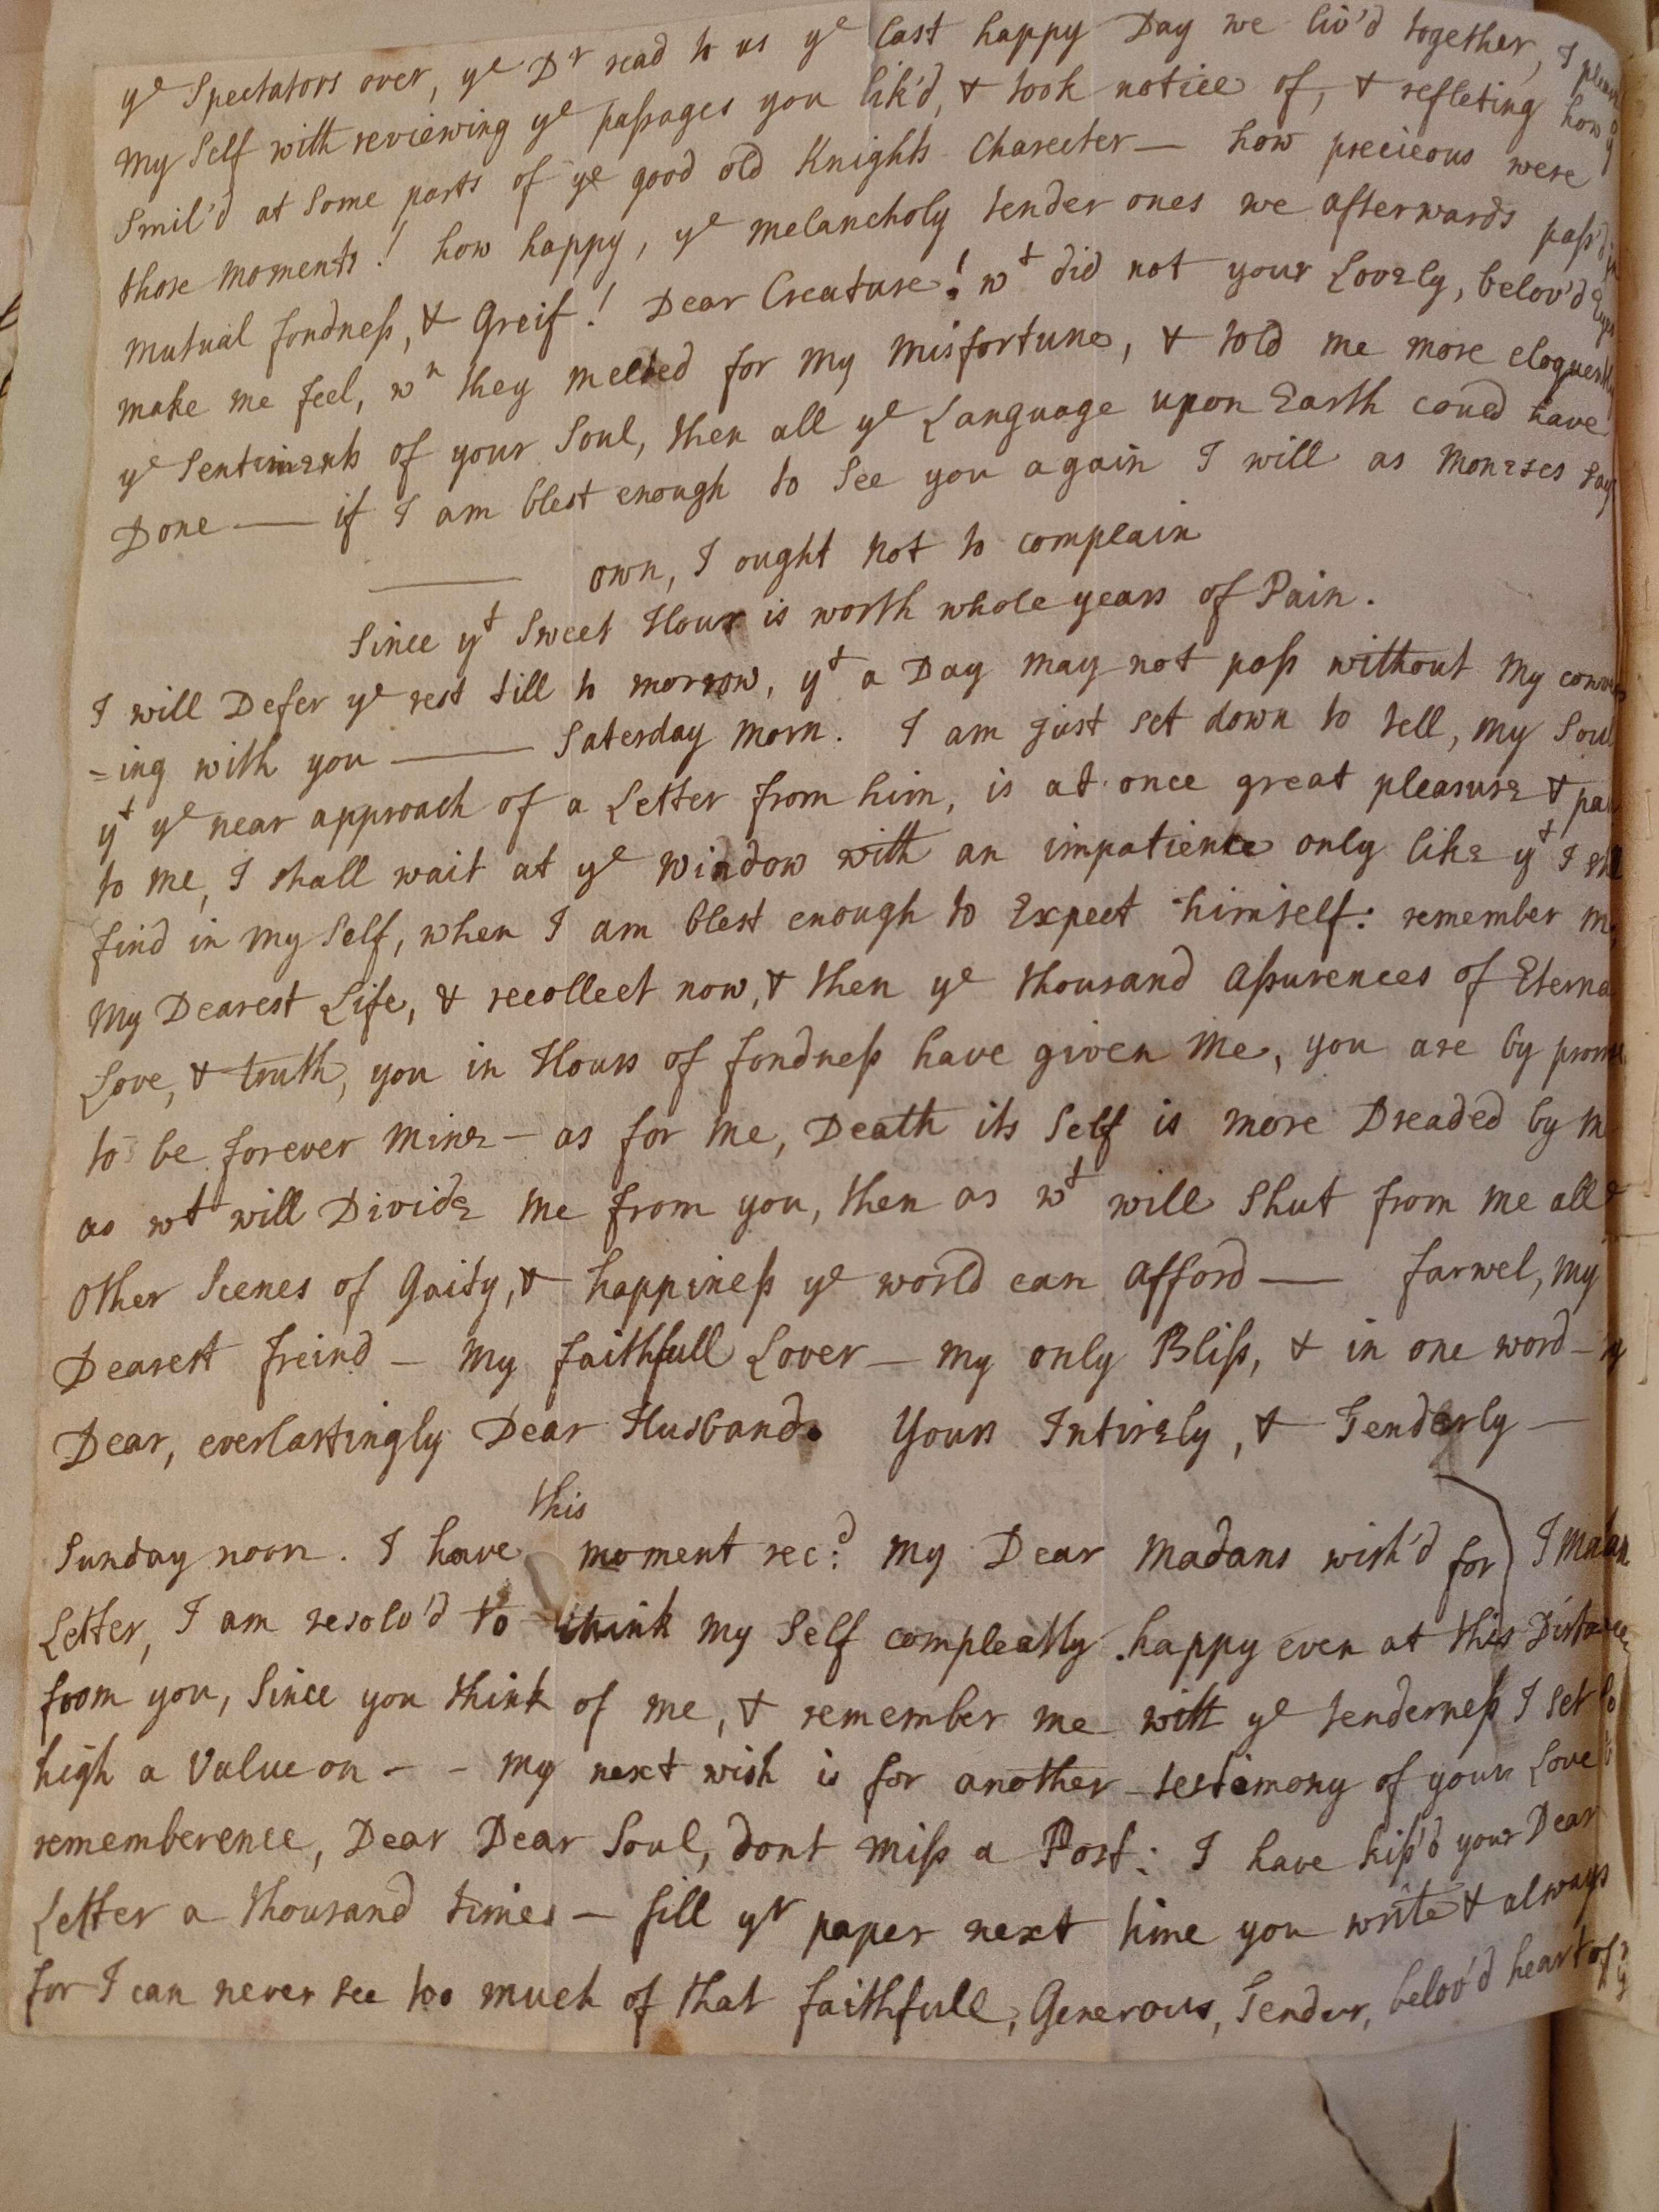 ye Spectators over, ye Dr read to us ye last happy Day we liv'd together, I
my Self with reviewing ye passages you lik'd, & took notice of, & refleting how
Smil'd at Some parts of ye good old Knights Charecter — how precieous were
those moments! how happy, ye melancholy tender ones we afterwards pass'd
mutual fondness, & Greif! Dear Creature! wt did not your Lovely, belov'd Eyes
make me feel, wn they melted for my misfortune, & told me more eloquently
ye Sentiments of your Soul, then all ye Language upon Earth coued have
Done — if I am blest enough to See you again I will as Moneses say
— own, I ought not to complain
Since yt Sweet Hour is worth whole years of Pain.
I will Defer ye rest till to morrow, yt a Day may not pass without my
=ing with you — Saterday morn. I am just set down to tell, my Soul
yt ye near approach of a Letter from him, is at once great pleasure &
to me, I shall wait at ye window with an impatience only like yt I
find in my Self, when I am blest enough to Expect himself: remember
My Dearest Life, & recollect now, & then ye thousand assurences of
Love, & truth, you in Hours of fondness have given me, you are by
to be forever mine — as for me, Death its Self is more Dreaded by
as wt will Divide me from you, then as wt will Shut from me all
other Scenes of Gaity, & happiness ye world can afford — farwel, my
Dearest freind — my faithfull Lover — my only Bliss, & in one word —
Dear, everlastingly Dear Husband. Yours Intirely, & Tenderly —
this
Sunday noon. I have moment recd: my Dear Madans wish'd for
Letter, I am resolv'd to think my Self compleatly happy even at this Distance
from you, Since you think of me, & remember me with ye tenderness I set so
high a Value on - - my next wish is for another testimony of your Love
rememberence, Dear Dear Soul, dont miss a Post: I have kiss'd your Dear
Letter a thousand times — fill yr paper next time you write & always
for I can never see too much of that faithfull, Generous, Tender, belov'd heart of